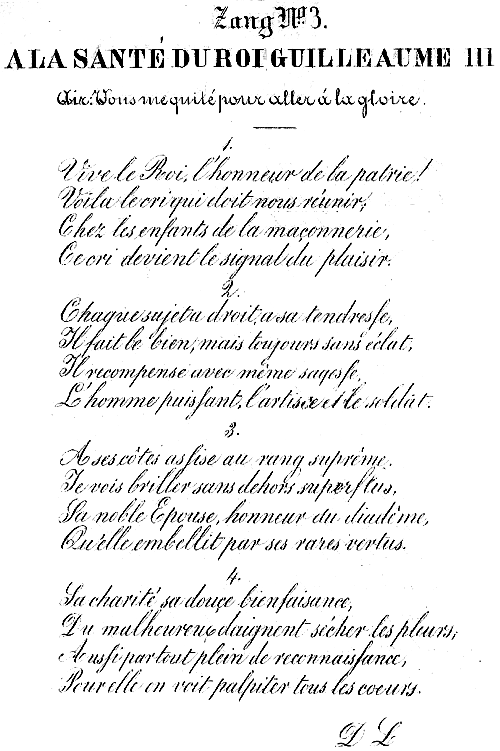 Zang No. 3.
A LA SANTÉ DU ROI GUILLEAUME III
Air: Vous me quité pour aller á la gloire.
1.
Vive le Roi, l'honneur de la patrie!
Voila le cri qui doit nous réunir,
Chez les enfants de la maçonnerie,
Ce cri devient le signal du plaisir.
2.
Chaque sujet a droit, a sa tendresse,
Il fait le bien, mais toujours sans éclat,
Il recompense avec même sagesse,
L'homme puissant, l'artiste et le soldat.
3.
A ses côtés assise au rang suprême,
Je vois briller sans dehors superflus,
Sa noble Epouse, honneur du diadême,
Qu'elle embellit par ses rares vertus.
4.
Sa charité, sa douçe bienfaisance,
Du malheureux daignent sécher les pleurs,
Aussi partout plein de reconnaissance,
Pour elle on voit palpiter tous les coeurs.
D L